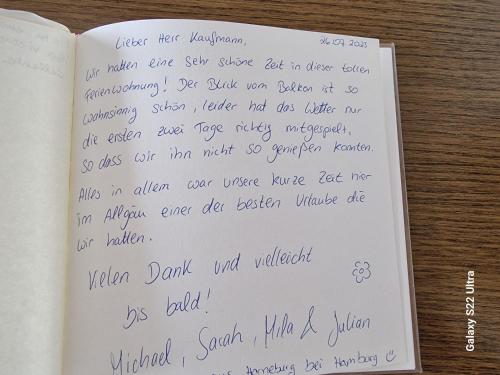 Lieber Herr Kaufmann, 26.07.2023
Wir hatten eine sehr schöne Zeit in dieser tollen
Ferienwohnung! Der Blick vom Balkon ist so
wahnsinnig schön, leider hat das Wetter nur
die ersten zwei Tage richtig mitgespielt,
so dass wir ihn nicht so genießen konnten.
Alles in allem war unsere kurze Zeit hier
im Allgäu einer der besten Urlaube die
wir hatten.
Vielen Dank und vielleicht
bis bald!
Michael, Sarah, Mila & Julian
bei Hamburg
Galaxy S22 Ultra